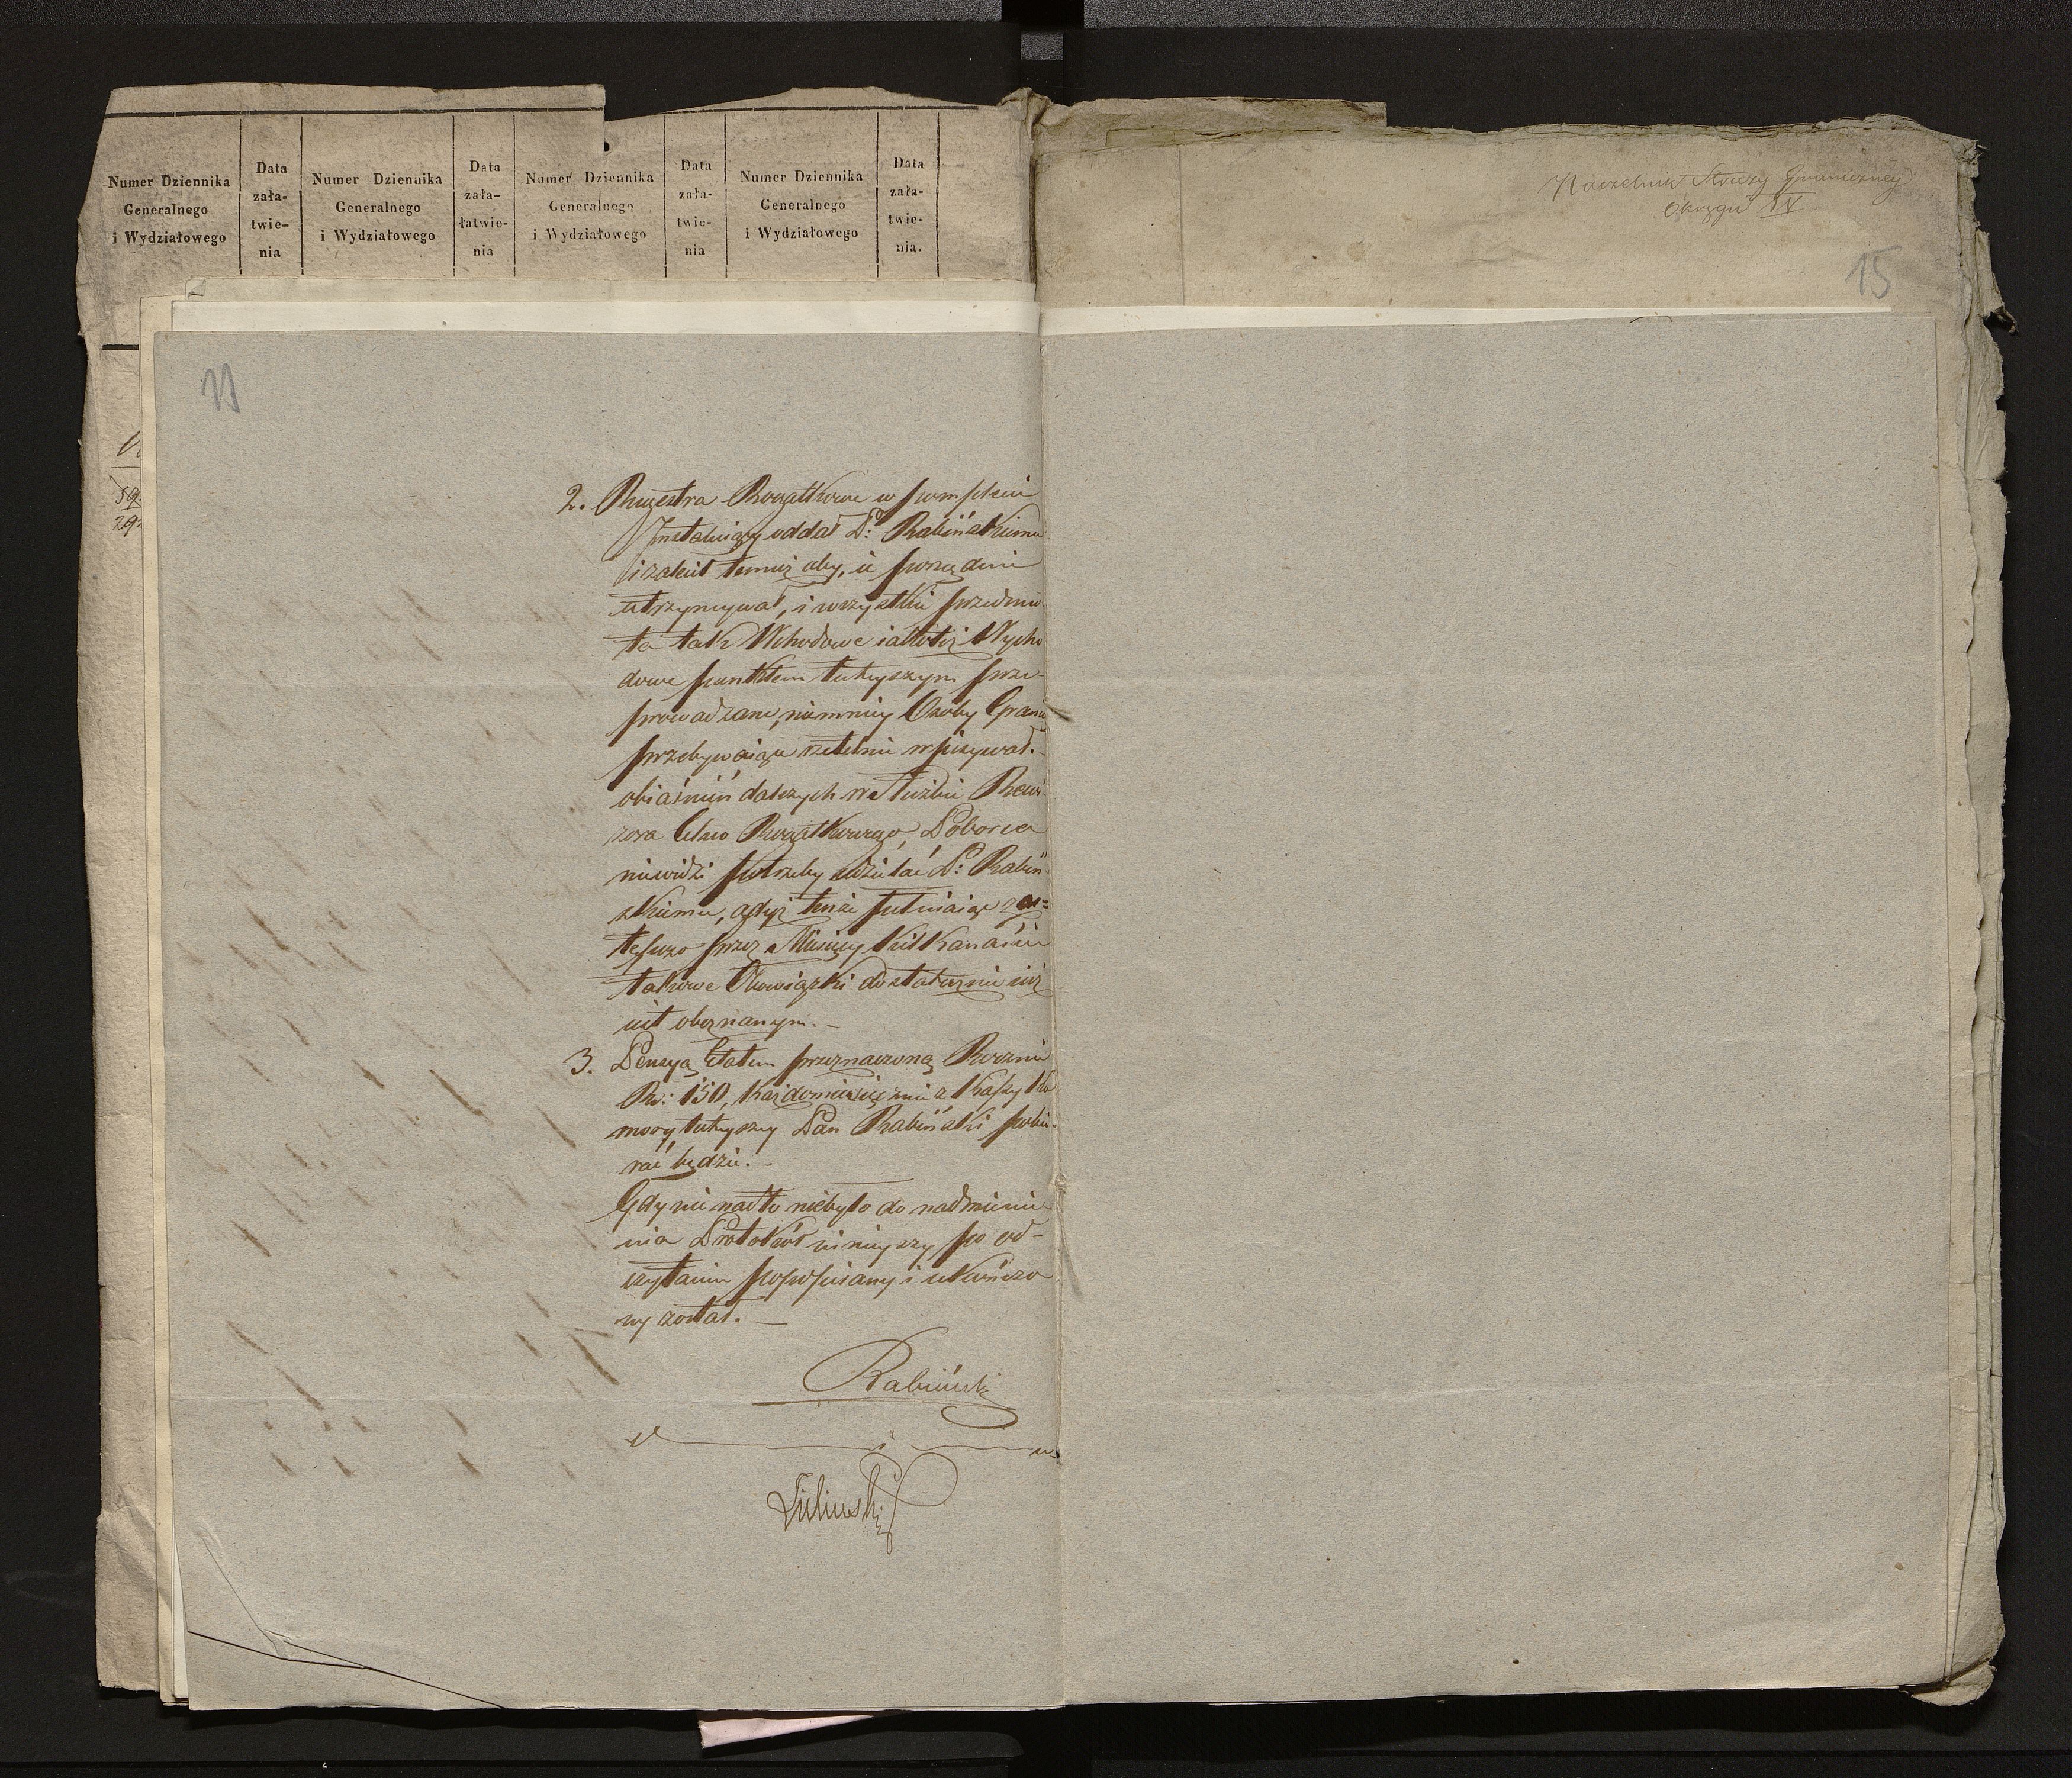 Numer Dziennika
Generalnego
i Wydziałowego
Data
zała-
twie-
nia
Numer Dziennika
Generalnego
i Wydziałowego
Data
zała-
łatwie-
nia
Numer Dziennika
Generalnego
i Wydziałowego
Data
zała-
twie-
nia
Numer Dziennika
Generalnego
i Wydziałowego
Data
zała-
twie-
nia.
Naczelnik Straży Graniczney
Okręgu IV
15
11
2. Rugestra Rogatkowe w komplecie
Instaluiący oddał P: Rabińskiemu
i zalecił temuż aby, ie porządnie
utrzymywał, i wszystkie przedmio
ta tak Wchodowe iakotéż Wycho
dowe punktem tuteyszym prze-
prowadzane, niemniey Osoby Grani
przebywaiące rzetelnie wpisywał.
obiaśnień dalszych w Służbie Rewi
zora Celno Rogatkowego, Poborca
niewidzi potrzeby udzielać P: Rabiń
skiemu, gdyż tenże pełniąc zas=
tępczo przez Miesięcy kilkanaście
takowe Obowiązki dostatecznie iuż
iest obeznanym. -
3. Pensyą Etatem przeznaczoną Rocznie
Rs: 150, każdomiesięcznie z Kassy Ko
mory tuteyszey Pan Rabiński pobie-
rać będzie. -
Gdy nic nadto niebyło do nadmienie
nia Protokół ninieyszy po od-
czytaniu podpisany i ukończo
ny został. -
Rabiński